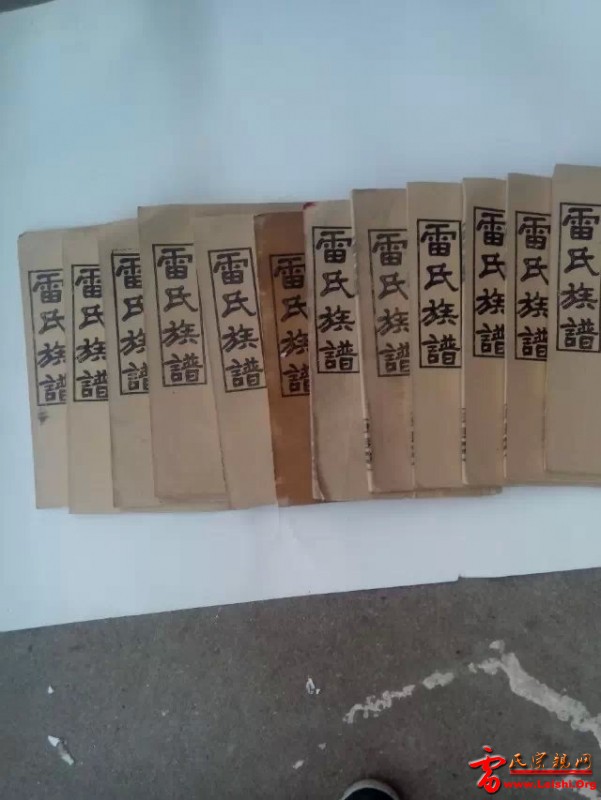 雷氏族譜
雷氏族譜
雷氏族譜
雷氏族譜
雷氏族譜
雷氏族譜
雷氏族譜
雷氏族譜
雷氏族譜
雷氏族譜
雷氏族譜
雷氏族譜
雷氏宗親网
www.Leishi.Org